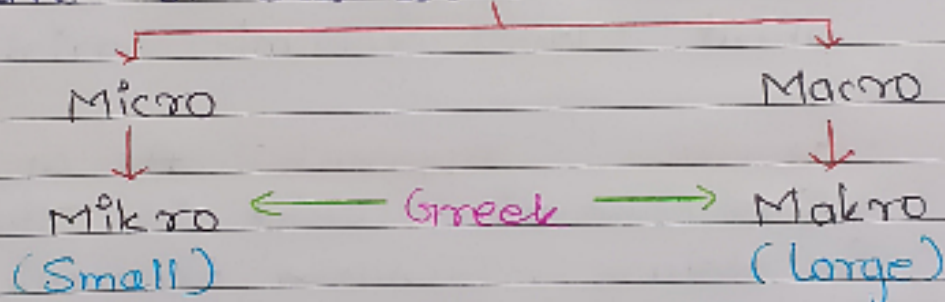 Micro Macro
Mikro Greek Makro
(Small) (large)